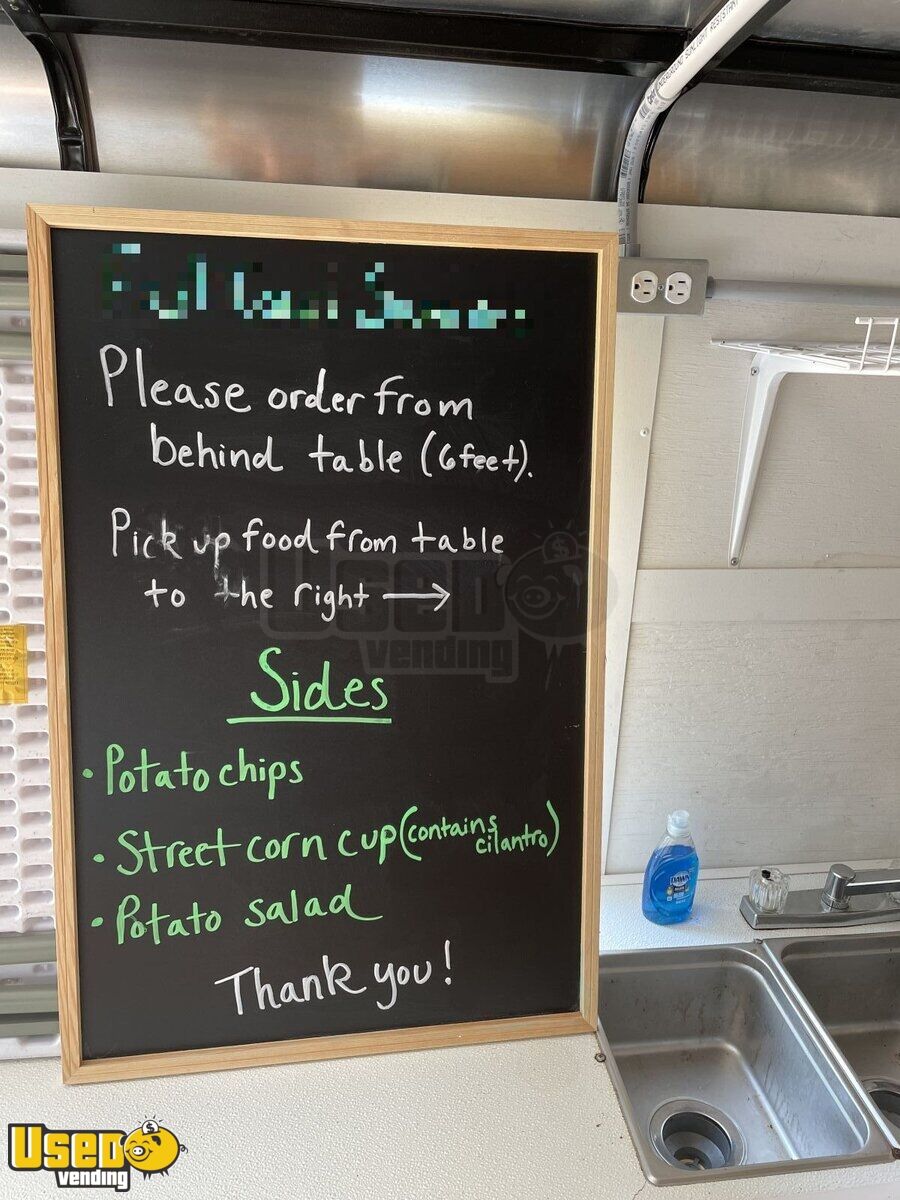 Please order from
behind table (6 feet).
Pick up food from table
to the right →
Sides
• Potato chips
• Street corn cup (contains
cilantro)
• Potato salad
Thank you!
DAWN
SUNLIGHT RESISTANT
USED
vending
USED
vending